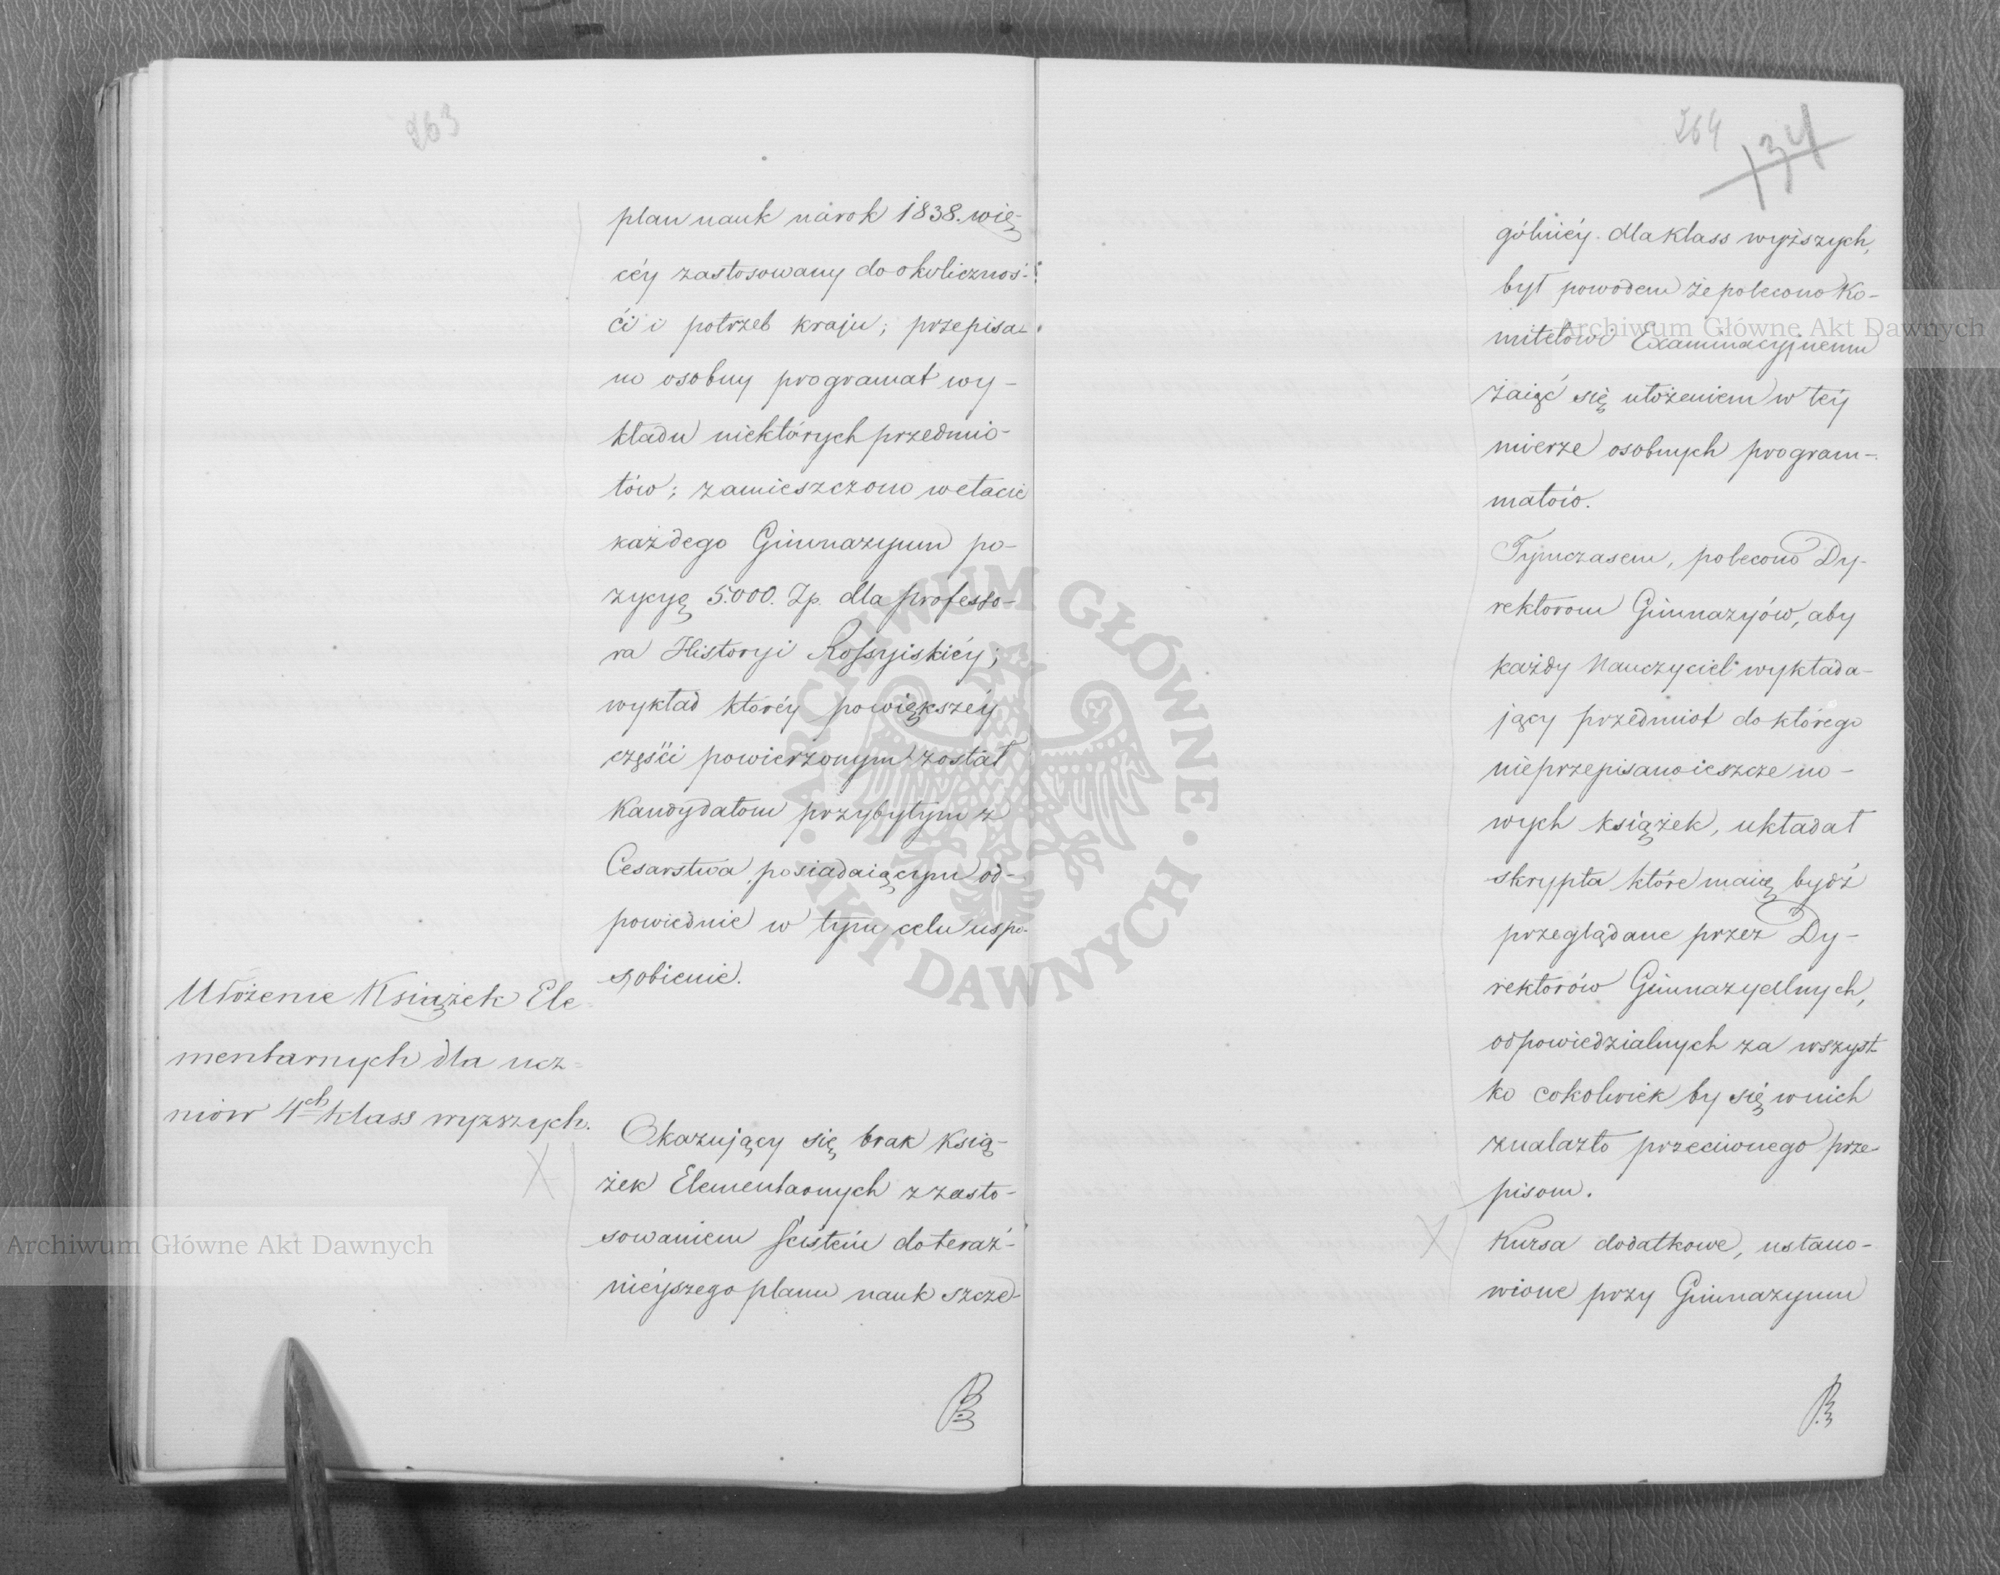 263
plan nauk na rok 1838. wię-
céy zastosowany do okolicznoś-
ći i potrzeb kraju; przepisa-
no osobny programat wy-
kładu niektórych przedmio-
tów; zamieszczono w etacie
każdego Gimnazyum po-
zycyę 5.000. Zp. dla professo-
ra Historyi Rossyiskiéy;
wykład któréy powiększéy
części powierzonym został
Kandydatom przybytym z
Cesarstwa posiadaiącym od-
powiednie w tym celu uspo-
sobienie.
Ułożenie Książek Ele-
mentarnych dla ucz-
niów 4ch klass wyzszych.
X
Okazujący się brak Ksią-
żek Elementarnych z zasto-
sowaniem ścisłém do teraź-
nieyszego planu nauk szcze-
264
134
gólniéy dla klass wyższych,
był powodem że polecono Ko-
mitetowi Examinacyjnemu
zaiąć się ułożeniem w téy
mierze osobnych program-
matów.
Tymczasem, polecono Dy-
rektorom Gimnazyów, aby
każdy Nauczyciel wykłada-
jący przedmiot do którego
nieprzepisano ieszcze no-
wych książek, układał
skrypta które maią bydź
przeglądane przez Dy-
rektorów Gimnazyalnych,
odpowiedzialnych za wszyst-
ko cokolwiek by się w nich
znalazło przeciwnego prze-
pisom.
X
Kursa dodatkowe, ustano-
wione przy Gimnazyum
Archiwum Główne Akt Dawnych
Archiwum Główne Akt Dawnych
ARCHIWUM GŁÓWNE · AKT DAWNYCH ·